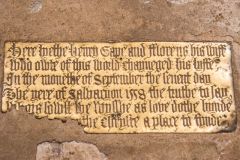 Here lyethe Henry Saye and Florens his wiff
Who owte of this world chaunged his liffe
In the monethe of September the sevent day
The yere of Salvacion 1558 the truthe to say
as love dothe bynde
a place to fynde